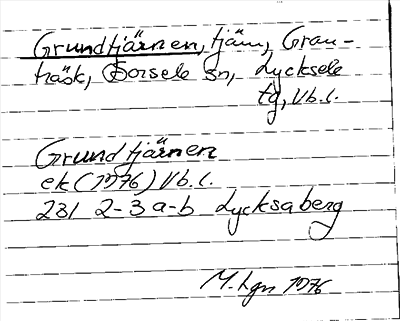 Grundtjärnen, tjärn, Gran-
träsk, Sorsele sn, Lycksele
tg, Vb.l.
Grundtjärnen
ek (1976) Vb.l.
231 2-3 a-b Lycksaberg
M. Lgn 1976